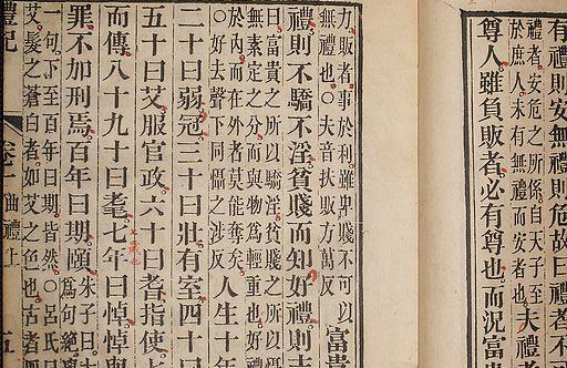 有禮則安無禮則危故曰禮者不
禮者安危之所係自天子至
於庶人未有無禮而安者也
夫禮者
尊人雖負販者必有尊也而況富
力販者事於利雖卑賤不可以
無禮也○夫音扶販方萬反
富貴
禮則不驕不淫貧賤而知好禮則志
曰富貴之所以驕淫貧賤之所以懾
無素定之分而與物為輕重也好禮
於內而在外者莫能奪矣
○好去聲下同懾之涉反
人生十年
二十曰弱冠三十曰壯有室四十曰
五十曰艾服官政六十曰耆指使七
而傳八十九十曰耄七年曰悼悼與
罪不加刑焉百年曰期頤
朱子曰
為句絕
一句下至百年曰期皆然○呂氏曰
艾髮之蒼白者如艾之色也古者四
禮記 卷一 曲禮上 五